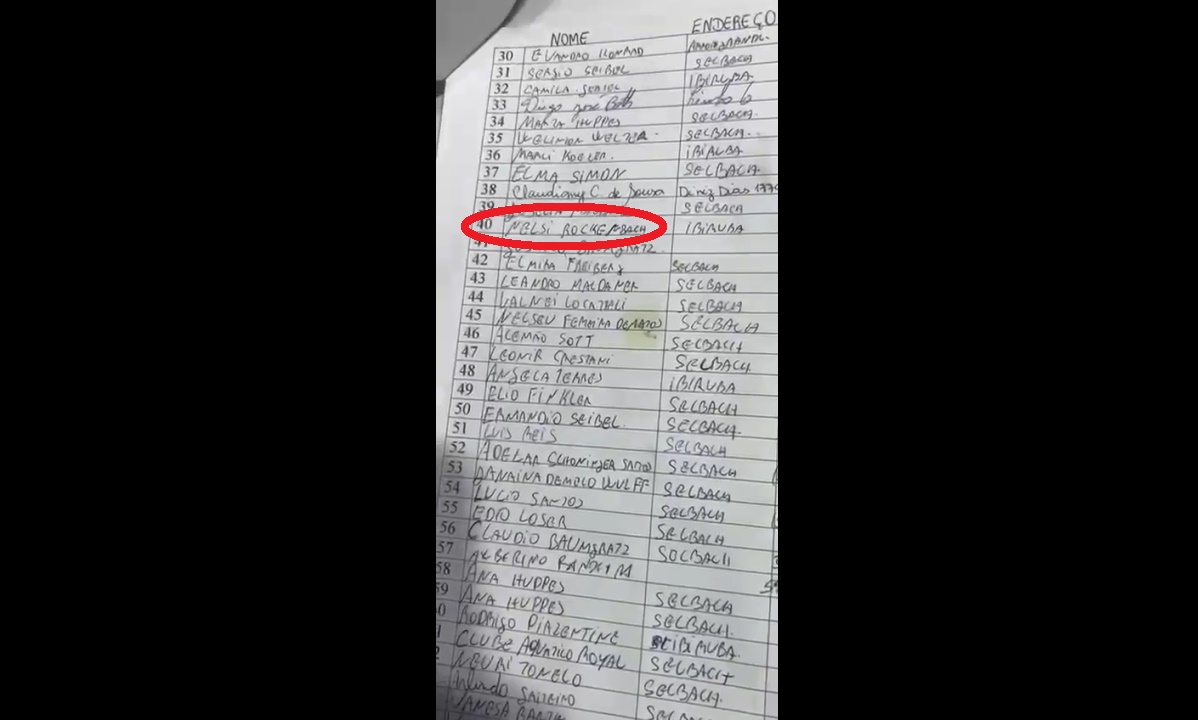 NOME ENDEREÇO
30 EVANDRO
31 SERGIO SEIBEL SELBACH
32 CAMILA IBIRUBA
33 Diego José
34 MARIA HUPPES SELBACH.
35 WELTER SELBACH..
36 MARLI KOHLER. IBIRUBA
37 ELMA SIMON SELBACH.
38 Claudiomy C. de Sousa Diniz Dias 177
39 SELBACH
40 NELSI ROCKENBACH IBIRUBA
41
42 ELMIRA FREIBERG SELBACH
43 LEANDRO MALDANER SELBACH
44 VALNEI LOCATALI SELBACH
45 NELSEU FERREIRA SELBACH
46 ALEMÃO SOTT SELBACH
47 LEONIR CRESTANI SELBACH
48 ANGELA TERRES IBIRUBA
49 ELIO FINKLER SELBACH
50 ERMANDIO SEIBEL SELBACH.
51 LUIS REIS SELBACH
52 ADELAR SELBACH
53 DANAINA DEMELO WULFF SELBACH
54 LUCIO SANTOS SELBACH
55 EDIO LOSER SELBACH
56 CLAUDIO BAUMGRATZ SOLBACH
57 ALBERINO BANDEIRA
58 ANA HUPPES SELBACH
59 ANA HUPPES SELBACH.
0 RODRIGO PIAZENTINE IBIRUBA.
1 CLUBE AQUATICO ROYAL SELBACH
2 NEURI TONELO SELBACH.
SELBACH
VANESA